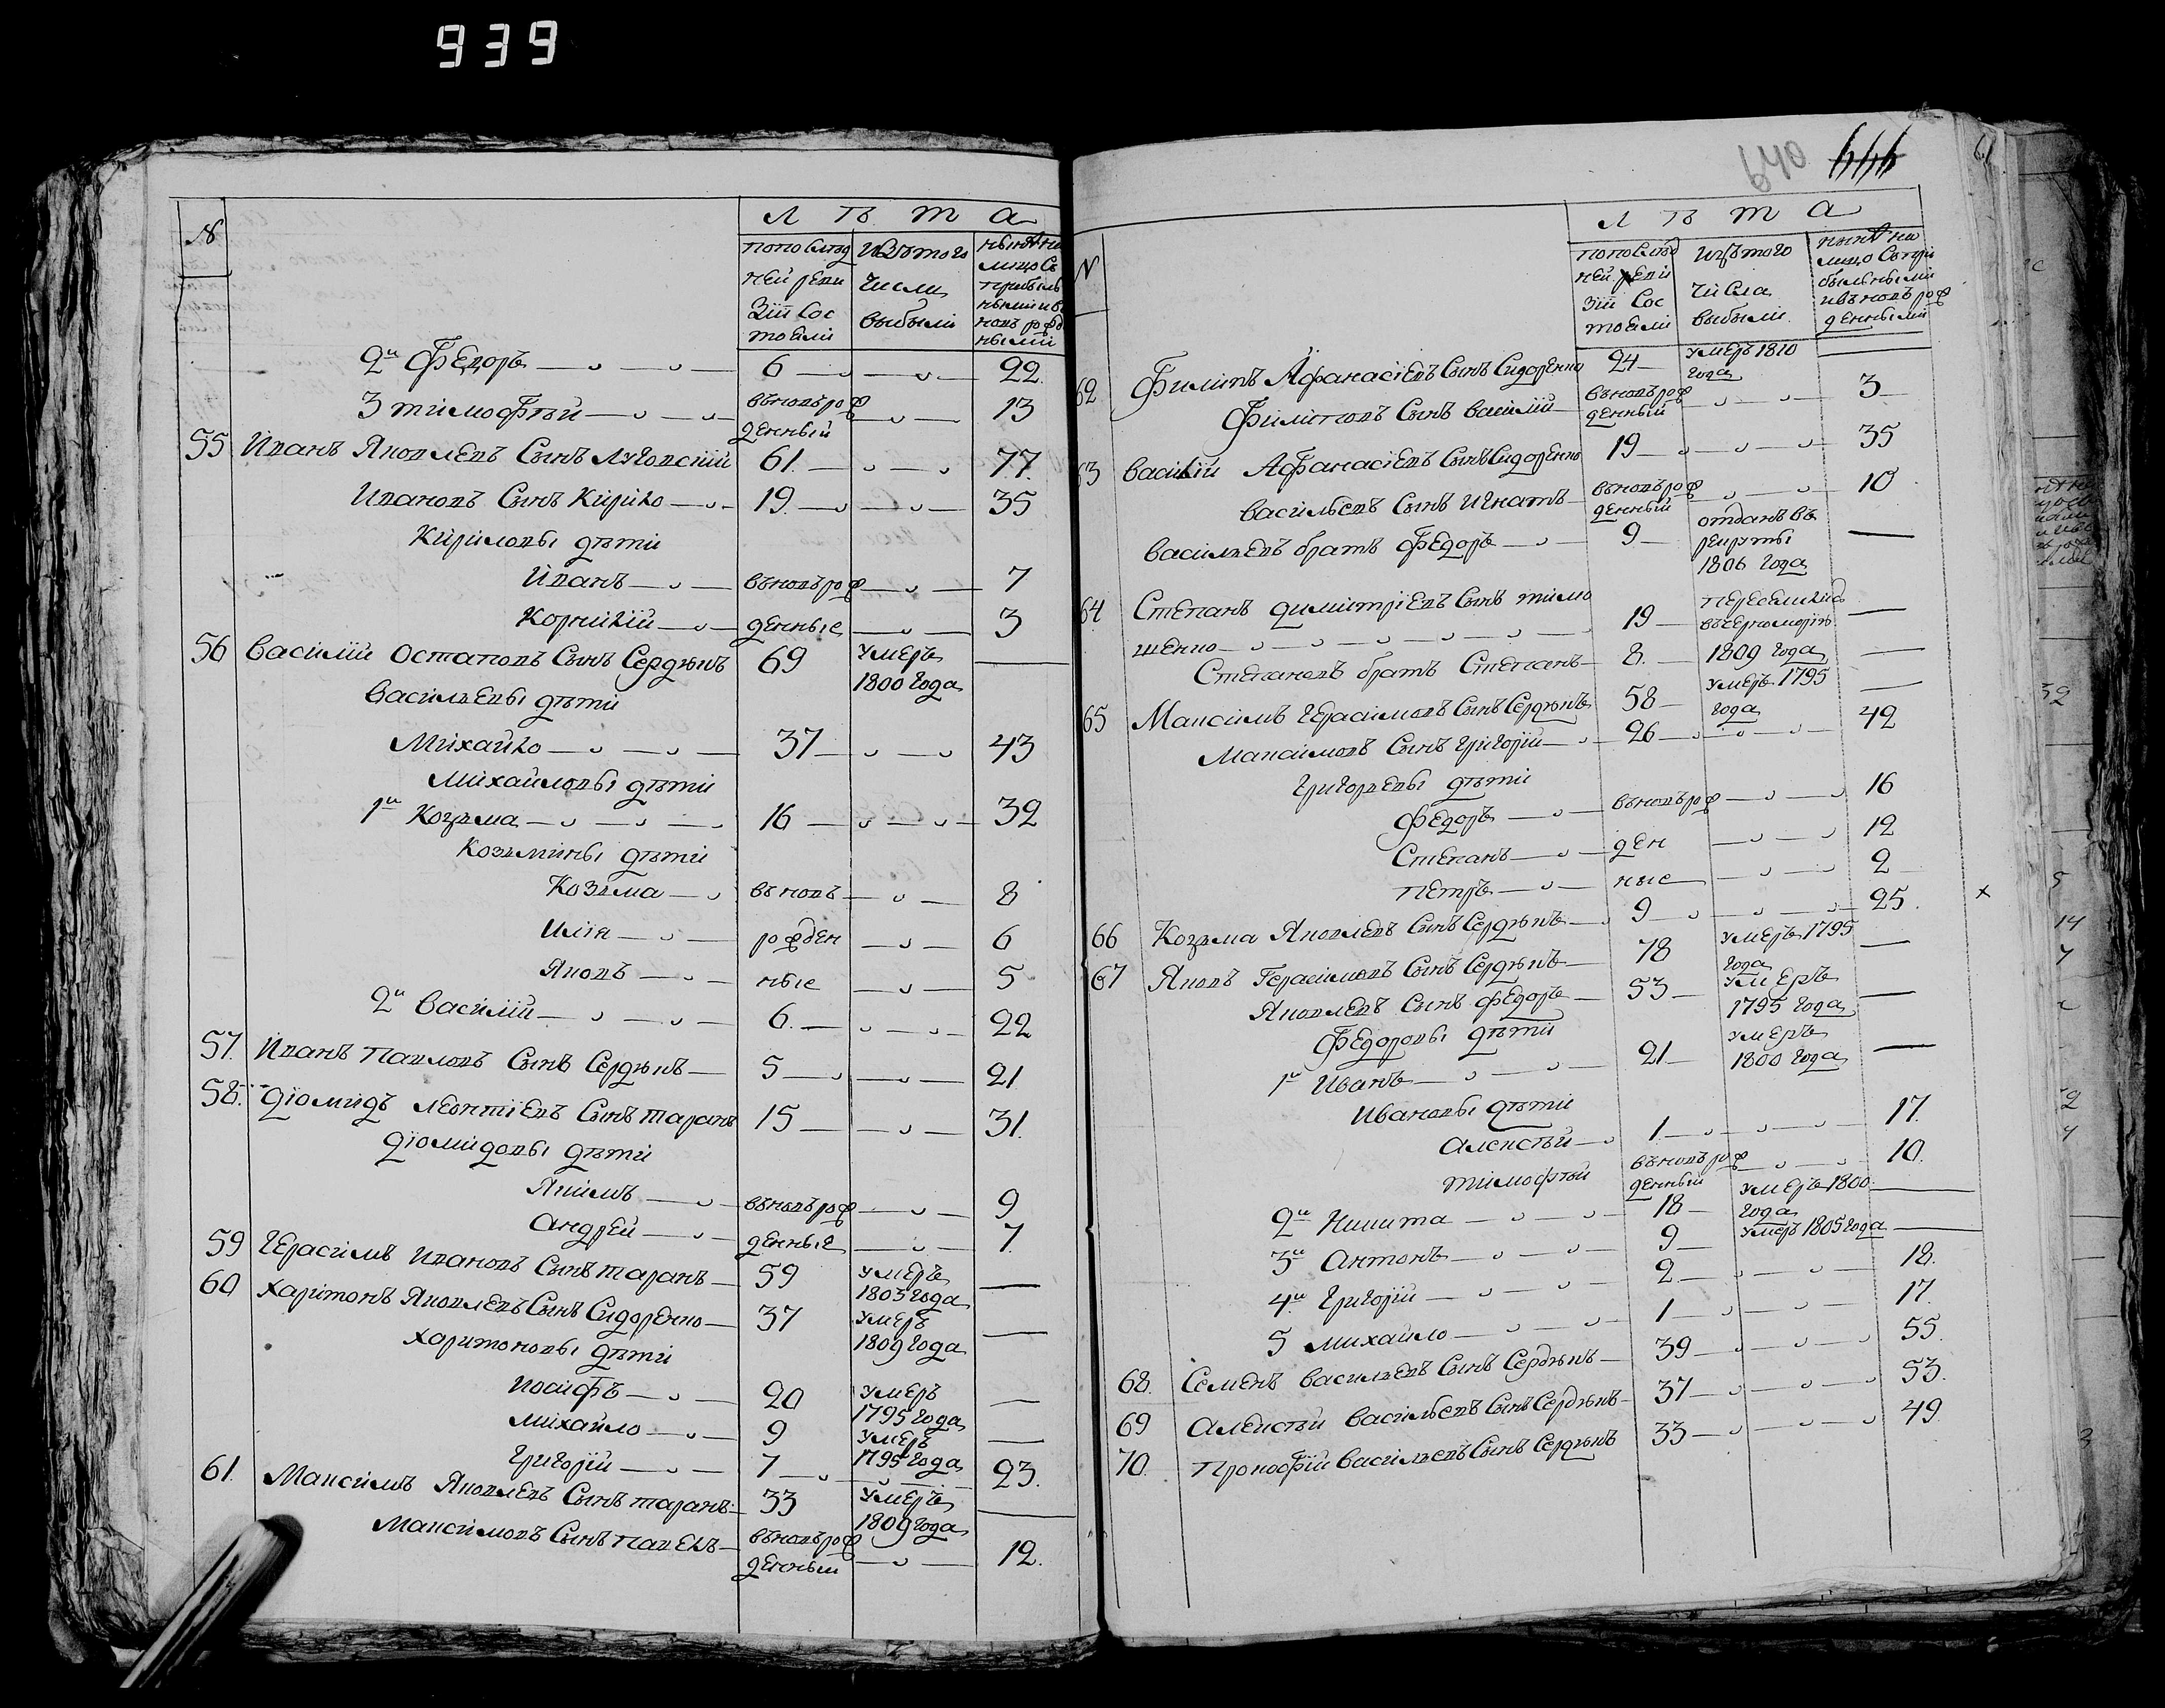 939
№
Л Ѣ т а
по послѣд
ней реви
зіи сос
тояли
Изъ того
числа
выбыли
нынѣ на
лицо съ
прибыль
ными и в
новь рожд
ными
2й Федоръ 6 22
3 Тимофѣй вновь рож
денный 13
55 Иванъ Яковлевъ Сынъ Луговский 61 77
Ивановъ Сынъ Кирило 19 35
Кириловы дѣти
Иванъ вновь рож 7
Корнилий денные 3
56 Василий Остаповъ Сынъ Сердюкъ 69 умеръ
1800 года
Васильевы дѣти
Михайло 37 43
Михайловы дѣти
1й Козьма 16 32
Козьмины дѣти
Козьма вновь 8
Илія рожден 6
Яковъ ные 5
2й Василий 6 22
57 Иванъ Павловъ Сынъ Сердюкъ 5 21
58 Діомидъ Леонтіевъ Сынъ Таранъ 15 31
Діомидовы дѣти
Якимъ вновь рож 9
Андрей денные 7
59 Герасимъ Ивановъ Сынъ Таранъ 59 умеръ
1803 года
60 Харитонъ Яковлевъ Сынъ Сидоренко 37 умеръ
1809 года
Харитоновы дѣти
Иосифъ 20 умеръ
1795 года
Михайло 9 умеръ
1795 года
Григорий 7 23
61 Максимъ Яковлевъ Сынъ Таранъ 33 умеръ
1809 года
Максимовъ Сынъ Павелъ вновь рож
денный 12
640 644
№
Л Ѣ т а
по послѣд
ней реви
зіи сос
тояли
Изъ того
числа
выбыли
нынѣ на
лицо съ при
быльными
и вновь рож
денными
62 Филипъ Афанасіевъ Сынъ Сидоренко 24 умеръ 1810
года
Филиповъ Сынъ Василий вновь рож
денный 3
63 Василий Афанасіевъ Сынъ Сидоренко 19 35
Васильевъ Сынъ Игнатъ вновь рож
денный 10
Васильевъ братъ Федоръ 9 отданъ въ
рекруты
1806 года
64 Степанъ Димитріевъ Сынъ Тимо
шенко 19 переселился
въ Черноморію
Степановъ братъ Степанъ 8 1809 года
65 Максимъ Герасимовъ Сынъ Сердюкъ 58 умеръ 1795
года
Максимовъ Сынъ Григорий 26 42
Григорьевы дѣти
Федоръ вновь рож 16
Степанъ ден 12
Петръ ные 2
66 Козьма Яковлевъ Сынъ Сердюкъ 9 25
67 Яковъ Герасимовъ Сынъ Сердюкъ 78 умеръ 1795
года
Яковлевъ Сынъ Федоръ 53 умеръ
1795 года
Федоровы дѣти
1й Иванъ 21 умеръ
1800 года
Ивановы дѣти
Алексѣй 1 17
Тимофѣй вновь рож
денный 10
2й Никита 18 умеръ 1800
года
3й Антонъ 9 умеръ 1805 года
4й Григорий 2 18
5 Михайло 1 17
68 Семенъ Васильевъ Сынъ Сердюкъ 39 55
69 Алексѣй Васильевъ Сынъ Сердюкъ 37 53
70 Прокофій Васильевъ Сынъ Сердюкъ 33 49